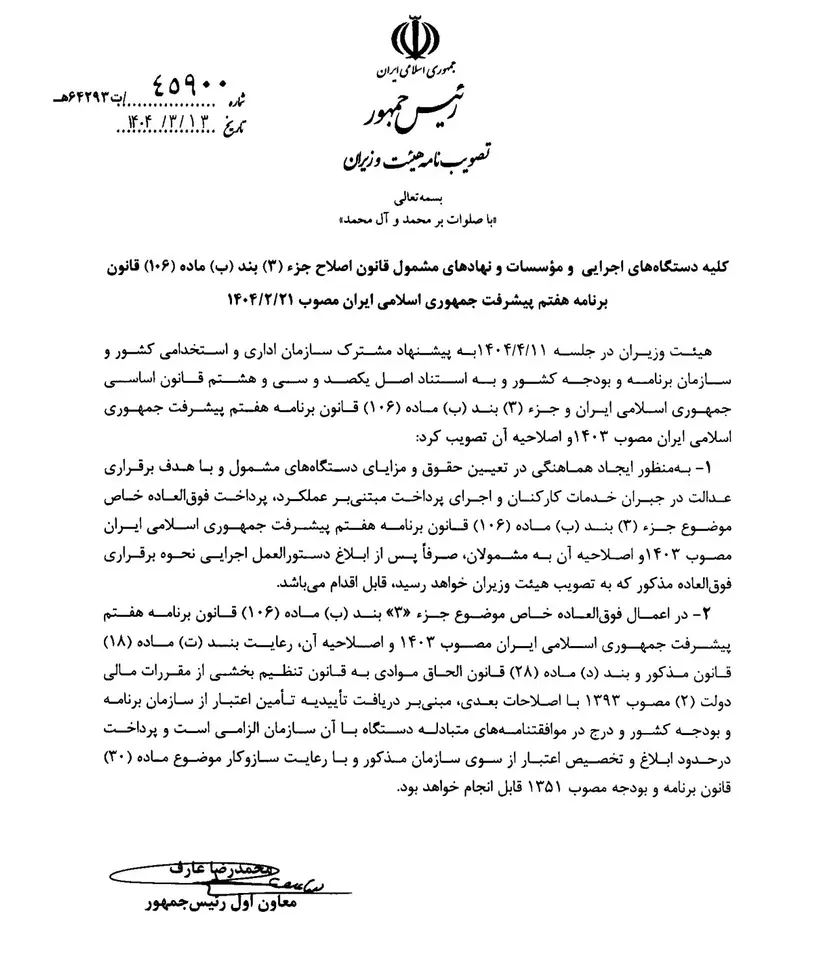 جمهوری اسلامی ایران
رئیس جمهور
تصویب نامه هیئت وزیران
شماره ۴۵۹۰۰/ت۶۴۲۹۳هـ
تاریخ ۱۴۰۴/۳/۱۳
بسمه تعالی
«با صلوات بر محمد و آل محمد»
کلیه دستگاه‌های اجرایی و مؤسسات و نهادهای مشمول قانون اصلاح جزء (۳) بند (ب) ماده (۱۰۶) قانون
برنامه هفتم پیشرفت جمهوری اسلامی ایران مصوب ۱۴۰۴/۲/۲۱
هیئت وزیران در جلسه ۱۴۰۴/۴/۱۱به پیشنهاد مشترک سازمان اداری و استخدامی کشور و
سازمان برنامه و بودجه کشور و به استناد اصل یکصد و سی و هشتم قانون اساسی
جمهوری اسلامی ایران و جزء (۳) بند (ب) ماده (۱۰۶) قانون برنامه هفتم پیشرفت جمهوری
اسلامی ایران مصوب ۱۴۰۳و اصلاحیه آن تصویب کرد:
۱- به‌منظور ایجاد هماهنگی در تعیین حقوق و مزایای دستگاه‌های مشمول و با هدف برقراری
عدالت در جبران خدمات کارکنان و اجرای پرداخت مبتنی‌بر عملکرد، پرداخت فوق‌العاده خاص
موضوع جزء (۳) بند (ب) ماده (۱۰۶) قانون برنامه هفتم پیشرفت جمهوری اسلامی ایران
مصوب ۱۴۰۳و اصلاحیه آن به مشمولان، صرفاً پس از ابلاغ دستورالعمل اجرایی نحوه برقراری
فوق‌العاده مذکور که به تصویب هیئت وزیران خواهد رسید، قابل اقدام می‌باشد.
۲- در اعمال فوق‌العاده خاص موضوع جزء «۳» بند (ب) ماده (۱۰۶) قانون برنامه هفتم
پیشرفت جمهوری اسلامی ایران مصوب ۱۴۰۳ و اصلاحیه آن، رعایت بند (ت) ماده (۱۸)
قانون مذکور و بند (د) ماده (۲۸) قانون الحاق موادی به قانون تنظیم بخشی از مقررات مالی
دولت (۲) مصوب ۱۳۹۳ با اصلاحات بعدی، مبنی‌بر دریافت تأییدیه تأمین اعتبار از سازمان برنامه
و بودجه کشور و درج در موافقتنامه‌های متبادله دستگاه با آن سازمان الزامی است و پرداخت
درحدود ابلاغ و تخصیص اعتبار از سوی سازمان مذکور و با رعایت سازوکار موضوع ماده (۳۰)
قانون برنامه و بودجه مصوب ۱۳۵۱ قابل انجام خواهد بود.
محمدرضا عارف
معاون اول رئیس‌جمهور